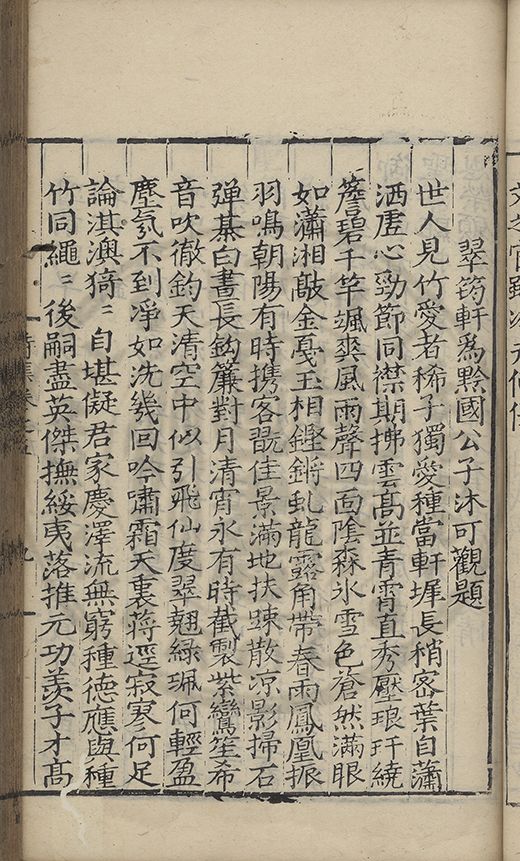 翠筠軒為黔國公子沐可觀題
世人見竹愛者稀子獨愛種當軒墀長稍密葉自瀟
洒虛心勁節同襟期拂雲髙並青霄直秀壓琅玕繞
簷碧千竿颯爽風雨聲四面陰森氷雪色蒼然滿眼
如瀟湘敲金戞玉相鏗鏘虬龍露角帶春雨鳳凰振
羽鳴朝陽有時携客翫佳景滿地扶踈散凉影掃石
彈碁白晝長鈎簾對月清宵永有時截製紫鸞笙希
音吹徹鈞天清空中似引飛仙度翠翹緑珮何輕盈
塵氛不到凈如洗幾回吟嘯霜天裏蔣逕寂寞何足
論淇澳猗〻自堪儗君家慶澤流無窮種德應與種
竹同繩〻後嗣盡英傑撫綏夷落推元功羡子才髙